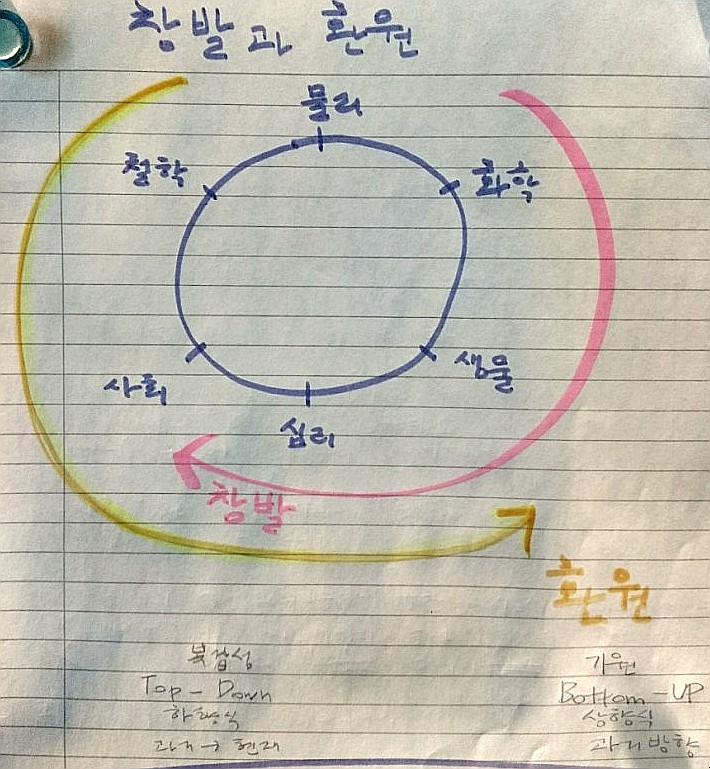 창발과 환원
물리
철학
화학
사회
생물
심리
창발
환원
복잡성
기원
Top - Down
Bottom - UP
하향식
상향식
과거 → 현재
과거 방향